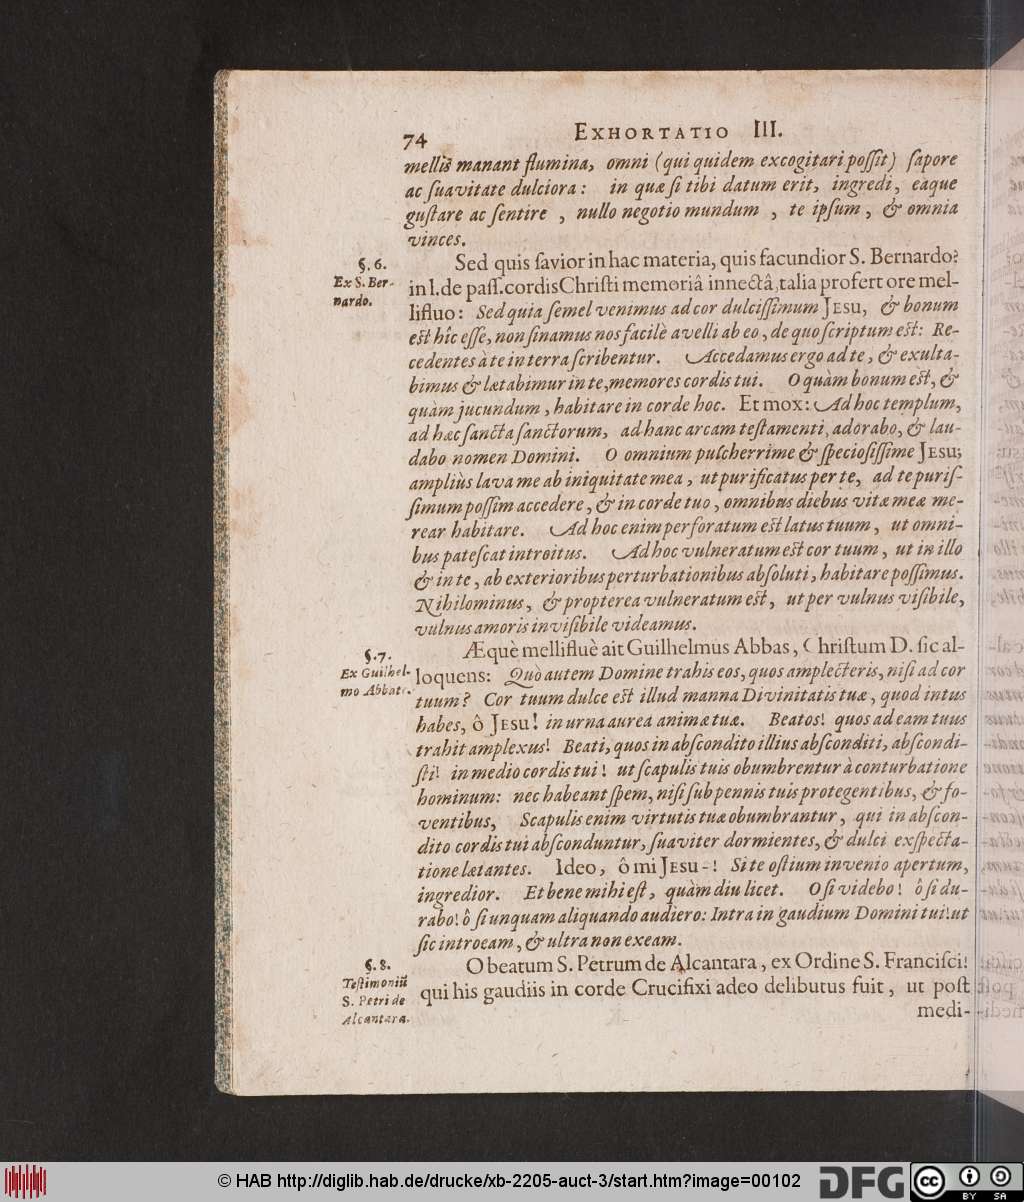 74 EXHORTATIO III.
mellis manant flumina, omni (qui quidem excogitari poſſit) ſapore
ac ſuavitate dulciora: in quæ ſi tibi datum erit, ingredi, eaque
guſtare ac ſentire, nullo negotio mundum, te ipſum, & omnia
vinces.
§. 6.
Ex S. Ber-
nardo.
Sed quis ſavior in hac materia, quis facundior S. Bernardo?
in l. de paſſ. cordis Chriſti memoriâ innectâ, talia profert ore mel-
lifluo: Sed quia ſemel venimus ad cor dulciſſimum JESU, & bonum
est hîc eſſe, non ſinamus nos facilè avelli ab eo, de quo ſcriptum est: Re-
cedentes à te in terra ſcribentur. Accedamus ergo ad te, & exulta-
bimus & lætabimur in te, memores cordis tui. O quàm bonum est, &
quàm jucundum, habitare in corde hoc. Et mox: Ad hoc templum,
ad hæc ſancta ſanctorum, ad hanc arcam teſtamenti, adorabo, & lau-
dabo nomen Domini. O omnium pulcherrime & ſpecioſiſſime JESU;
ampliùs lava me ab iniquitate mea, ut purificatus per te, ad te puriſ-
ſimum poſſim accedere, & in corde tuo, omnibus diebus vitæ meæ me-
rear habitare. Ad hoc enim perforatum est latus tuum, ut omni-
bus pateſcat introitus. Ad hoc vulneratum est cor tuum, ut in illo
& in te, ab exterioribus perturbationibus abſoluti, habitare poſſimus.
Nihilominus, & propterea vulneratum est, ut per vulnus viſibile,
vulnus amoris inviſibile videamus.
§. 7.
Ex Guilhel-
mo Abbate.
Æquè mellifluè ait Guilhelmus Abbas, Chriſtum D. ſic al-
loquens: Quò autem Domine trahis eos, quos amplecteris, niſi ad cor
tuum? Cor tuum dulce est illud manna Divinitatis tuæ, quod intus
habes, ô JESU! in urna aurea animæ tuæ. Beatos! quos ad eam tuus
trahit amplexus! Beati, quos in abſcondito illius abſconditi, abſcondi-
ſti! in medio cordis tui! ut ſcapulis tuis obumbrentur à conturbatione
hominum: nec habeant ſpem, niſi ſub pennis tuis protegentibus, & fo-
ventibus, Scapulis enim virtutis tuæ obumbrantur, qui in abſcon-
dito cordis tui abſconduntur, ſuaviter dormientes, & dulci exſpecta-
tione lætantes. Ideo, ô mi JESU-! Si te oſtium invenio apertum,
ingredior. Et bene mihi eſt, quàm diu licet. O ſi videbo! ô ſi du-
rabo! ô ſi unquam aliquando audiero: Intra in gaudium Domini tui! ut
ſic introeam, & ultra non exeam.
§. 8.
Teſtimoniũ
S. Petri de
Alcantara.
O beatum S. Petrum de Alcantara, ex Ordine S. Franciſci!
qui his gaudiis in corde Crucifixi adeo delibutus fuit, ut poſt
medi-
© HAB http://diglib.hab.de/drucke/xb-2205-auct-3/start.htm?image=00102
DFG
cc
BY SA